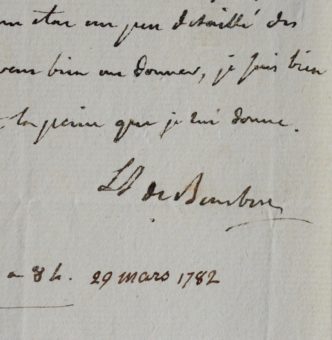 un etat un peu detaillé des
bien me donner, je suis bien
la peine que je lui donne.
LB de Bourbon
a 8 h. 29 mars 1782